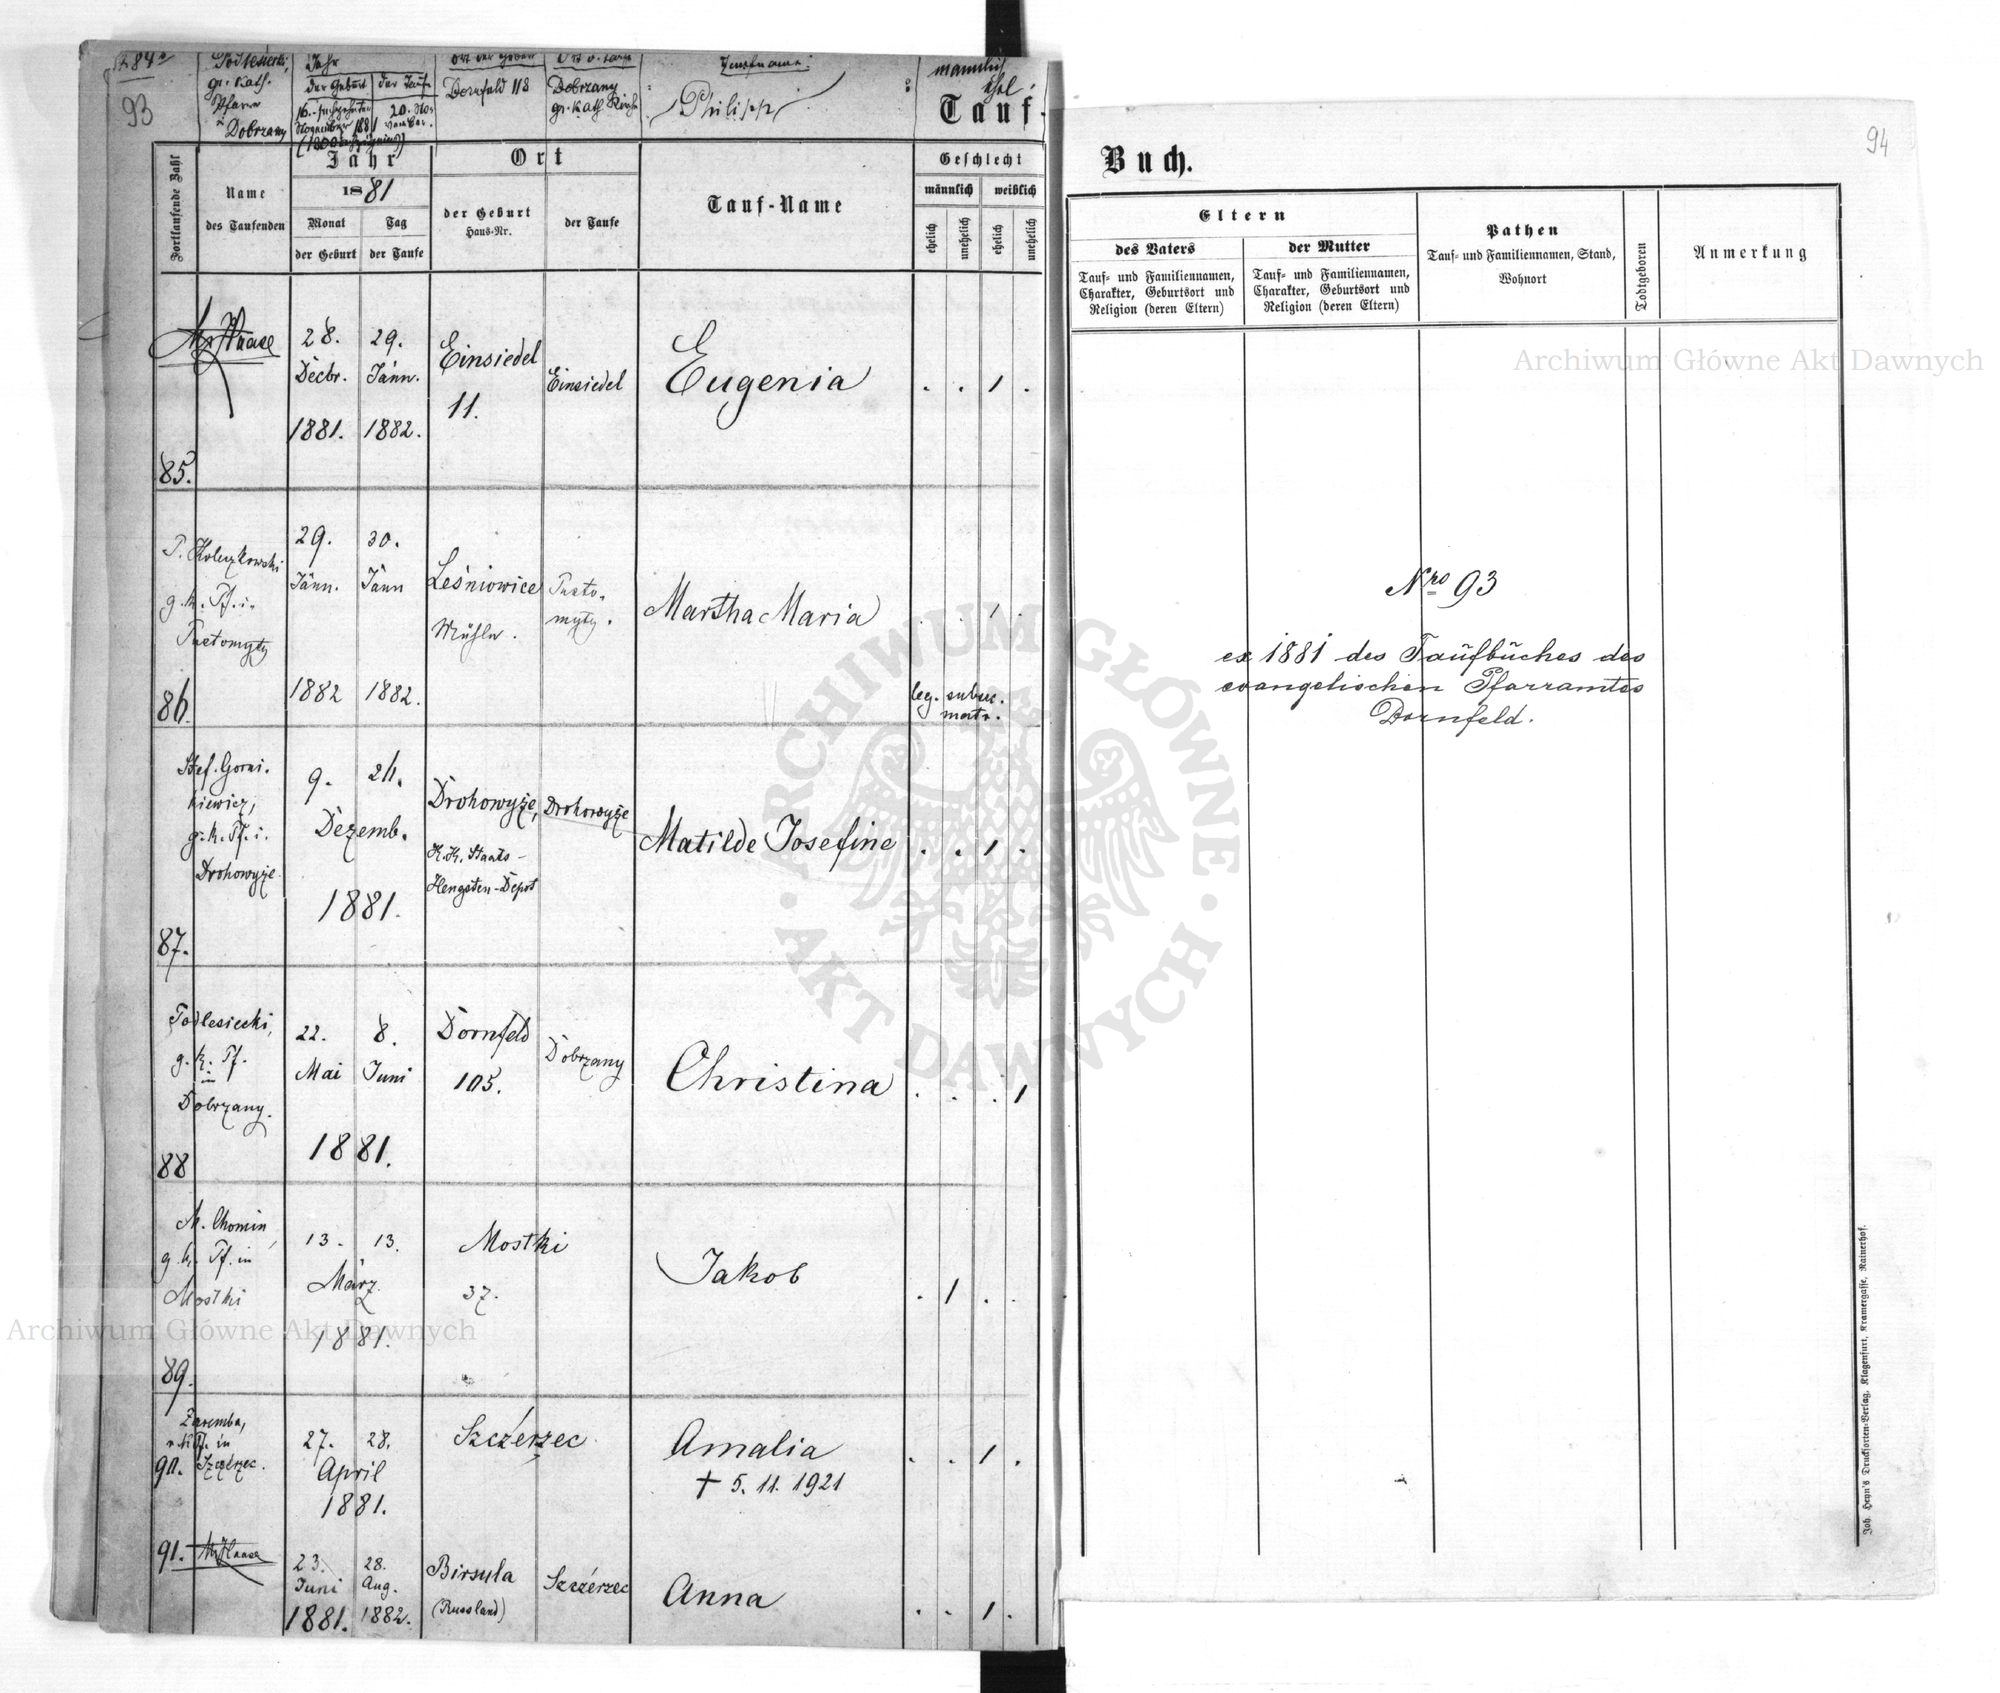 84a
93
Podlesiecki,
gr. kath.
Pfarrer
Dobrzany
Jahr
der Geburt
der Taufe
16.
November 1881
20. No-
vember.
Ort der Geburt
Dornfeld 118
Ort d. Taufe
Dobrzany
gr. kath Kirche
Taufname:
Philipp
männlich
ehel.
Tauf-
Fortlaufende Zahl
Name
des Taufenden
Jahr
1881
Monat
Tag
der Geburt
der Taufe
Ort
der Geburt
Haus-Nr.
der Taufe
Tauf-Name
Geschlecht
männlich
weiblich
ehelich
unehelich
ehelich
unehelich
85.
Haase
28.
Decbr.
1881.
29.
Jänn.
1882.
Einsiedel
11.
Einsiedel
Eugenia
. . 1 .
86.
g. k. Pf. i.
Pustomyty
29.
Jänn.
1882
30.
Jänn
1882.
Leśniowice
Mühle.
Pusto-
myty.
Martha Maria
. . 1 .
leg. subsec.
matr.
87.
Stef. Gorni-
kiewicz,
g. k. Pf. i.
Drohowyże
9. 26.
Dezemb.
1881.
Drohowyże,
K.K. Staats-
Hengsten-Depot
Drohowyże
Matilde Josefine
. . 1 .
88
Podlesiecki,
g. k. Pf.
in
Dobrzany.
22.
Mai
8.
Juni
1881.
Dornfeld
105.
Dobrzany
Christina
. . . 1
89.
M. Chomin,
g. k. Pf. in
Mostki
13. 13.
März.
1881.
Mostki
37.
Jakob
. 1 . .
90.
Zaremba,
r. k. Pf. in
Szczerzec.
27. 28.
April
1881.
Szczerzec
Amalia
† 5. 11. 1921
. . 1 .
91.
Haase
23.
Juni
1881.
28.
Aug.
1882.
Birsula
(Russland)
Szczerzec
Anna
. . 1 .
94
Buch.
Eltern
des Vaters
Tauf- und Familiennamen,
Charakter, Geburtsort und
Religion (deren Eltern)
der Mutter
Tauf- und Familiennamen,
Charakter, Geburtsort und
Religion (deren Eltern)
Pathen
Tauf- und Familiennamen, Stand,
Wohnort
Todtgeboren
Anmerkung
Nro 93
ex 1881 des Taufbuches des
evangelischen Pfarramtes
Dornfeld.
Joh. Heyn's Drucksorten-Verlag, Klagenfurt, Kramergasse, Rainerhof.
Archiwum Główne Akt Dawnych
Archiwum Główne Akt Dawnych
ARCHIWUM GŁÓWNE
AKT DAWNYCH